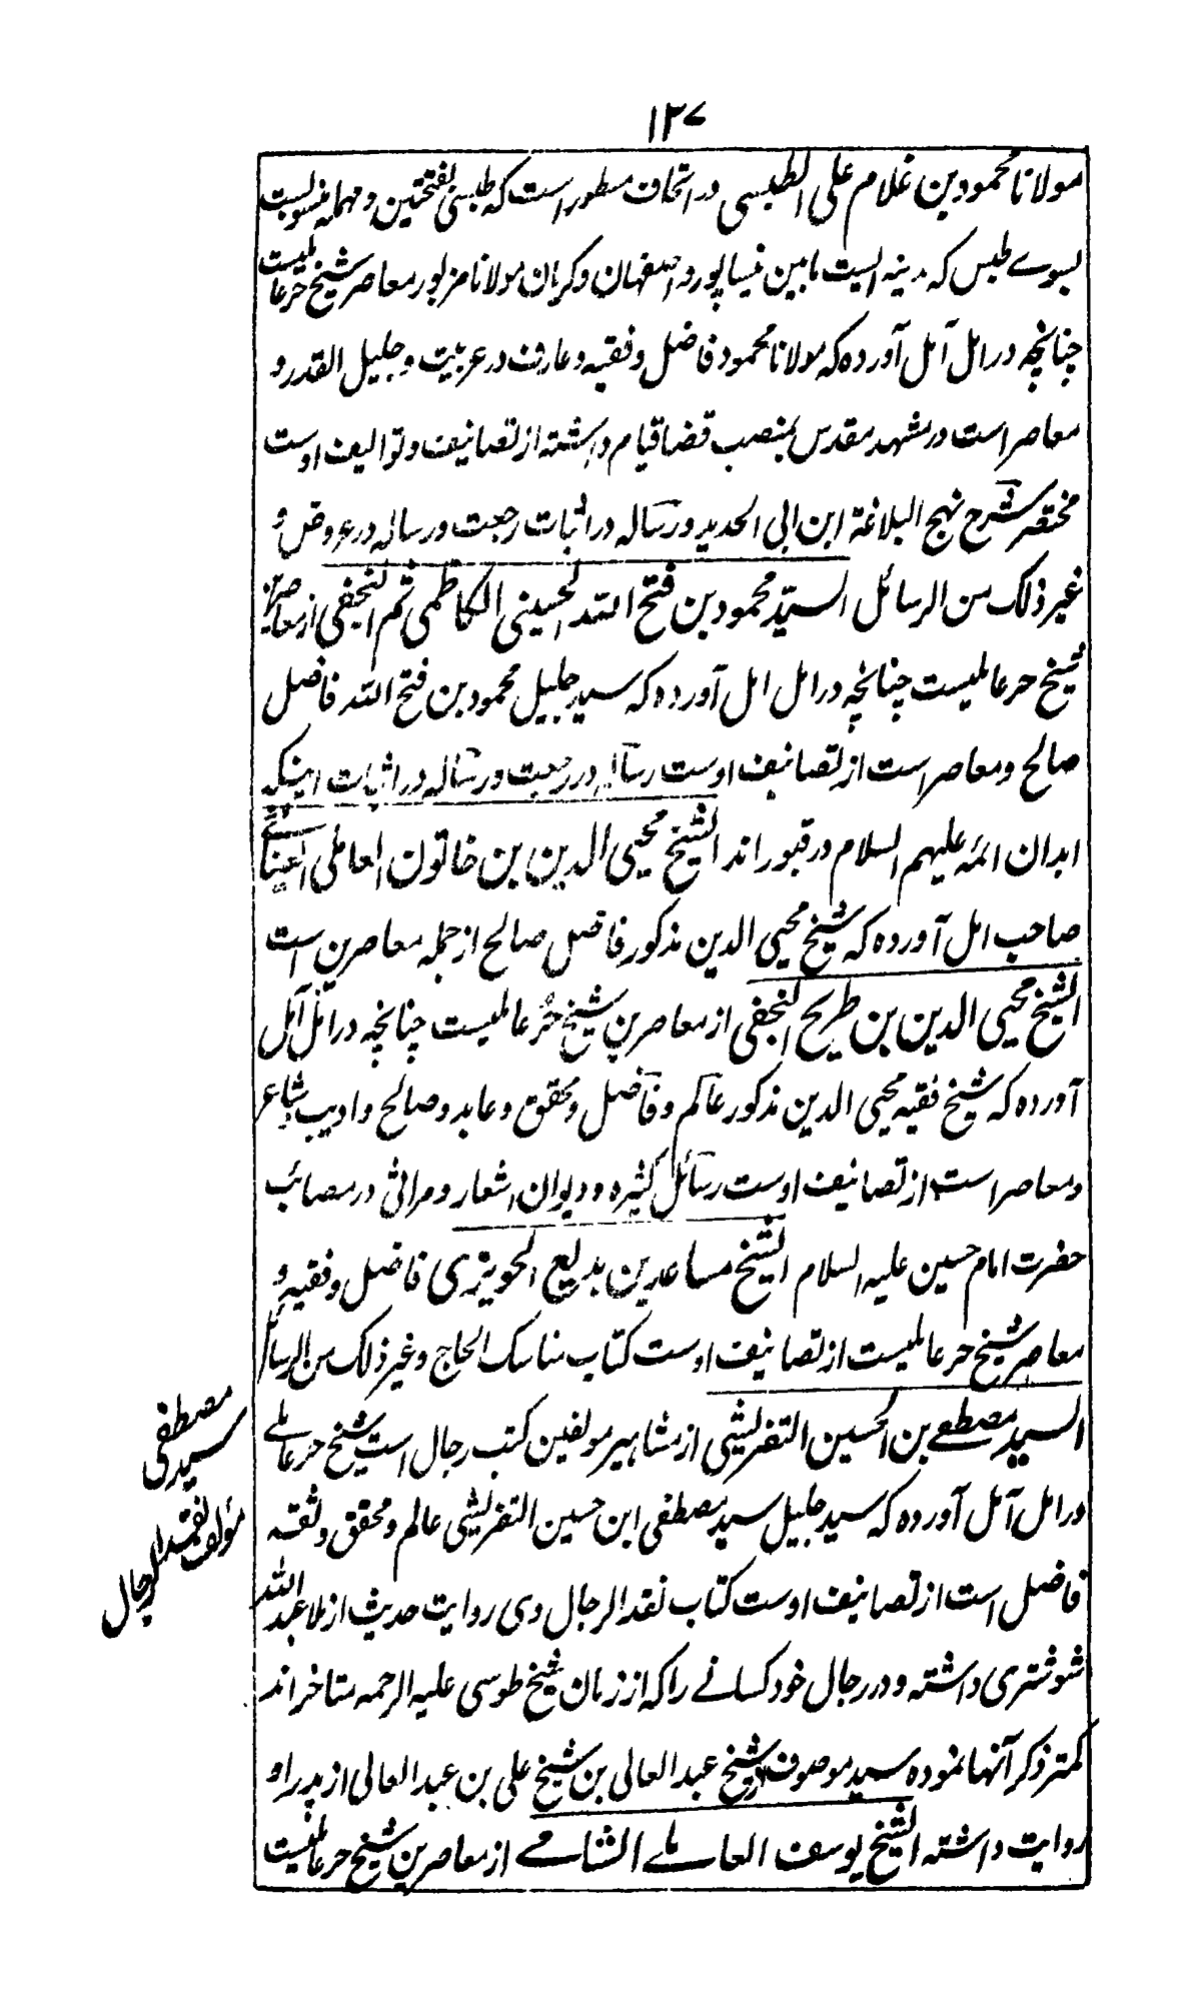 ۱۳۷
مولانا محمود بن غلام علی الطبسی در اتحاف مسطور است که طبسی بفتحتین و مهمله منسوبست
بسوے طبس که مدینه ایست مابین نیساپور و اصفهان و کرمان مولانا مزبور معاصر شیخ حر عاملیست
چنانچه در امل آمل آورده که مولانا محمود فاضل و فقیه و عارف در عربیت و جلیل القدر و
معاصر است در مشهد مقدس بمنصب قضا قیام داشته از تصانیف و توالیف اوست
مختصر شرح نهج البلاغة ابن ابی الحدید و رساله در اثبات رجعت و رساله در عروض و
غیر ذلک من الرسائل السید محمود بن فتح الله الحسینی الکاظمی ثم النجفی از معاصرین
شیخ حر عاملیست چنانچه در امل امل آورده که سید جلیل محمود بن فتح الله فاضل
صالح و معاصر است از تصانیف اوست رساله در رجعت و رساله در اثبات اینکه
ابدان ائمه علیهم السلام در قبور اند الشیخ محیی الدین بن خاتون العاملی العیناثے
صاحب امل آورده که شیخ محیی الدین مذکور فاضل صالح از جمله معاصرین است
الشیخ محیی الدین بن طریح النجفی از معاصرین شیخ حُر عاملیست چنانچه در امل آمل
آورده که شیخ فقیه محیی الدین مذکور عالم و فاضل و محقق و عابد و صالح و ادیب و شاعر
و معاصر است از تصانیف اوست رسائل کثیره و دیوان اشعار و مراثی در مصائب
حضرت امام حسین علیه السلام الشیخ مساعد بن بدیع الحویزی فاضل و فقیه و
معاصر شیخ حر عاملیست از تصانیف اوست کتاب مناسک الحاج و غیر ذلک من الرسائل
السید مصطفے بن الحسین التفریشی از مشاهیر مولفین کتب رجال است شیخ حر عاملے
در امل آمل آورده که سید جلیل سید مصطفی ابن حسین التفریشی عالم و محقق و ثقه
فاضل است از تصانیف اوست کتاب نقد الرجال وی روایت حدیث از ملا عبد الله
شوشتری داشته و در رجال خود کسانے را که از زمان شیخ طوسی علیه الرحمه متاخر اند
کمتر ذکر آنها نموده سید موصوف از شیخ عبد العالی بن شیخ علی بن عبد العالی از پدر او
روایت داشته الشیخ یوسف العاملے الشامے از معاصرین شیخ حر عاملیست
سید مصطفی
مؤلف نقد الرجال